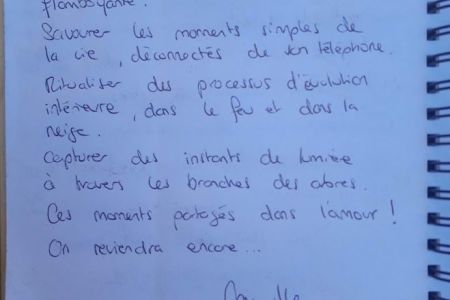 flamboyante.
Savourer les moments simples de
la vie, déconnectés de son téléphone.
Ritualiser des processus d'évolution
intérieure, dans le feu et dans la
neige.
Capturer des instants de lumière
à travers les branches des arbres.
Ces moments partagés dans l'amour !
On reviendra encore...